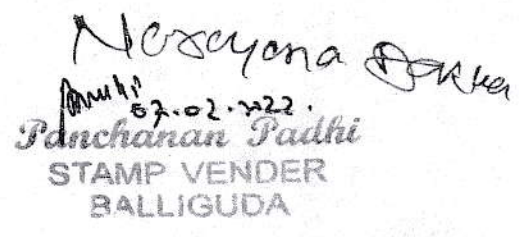 Narayana
07.02.2022.
Panchanan Padhi
STAMP VENDER
BALLIGUDA